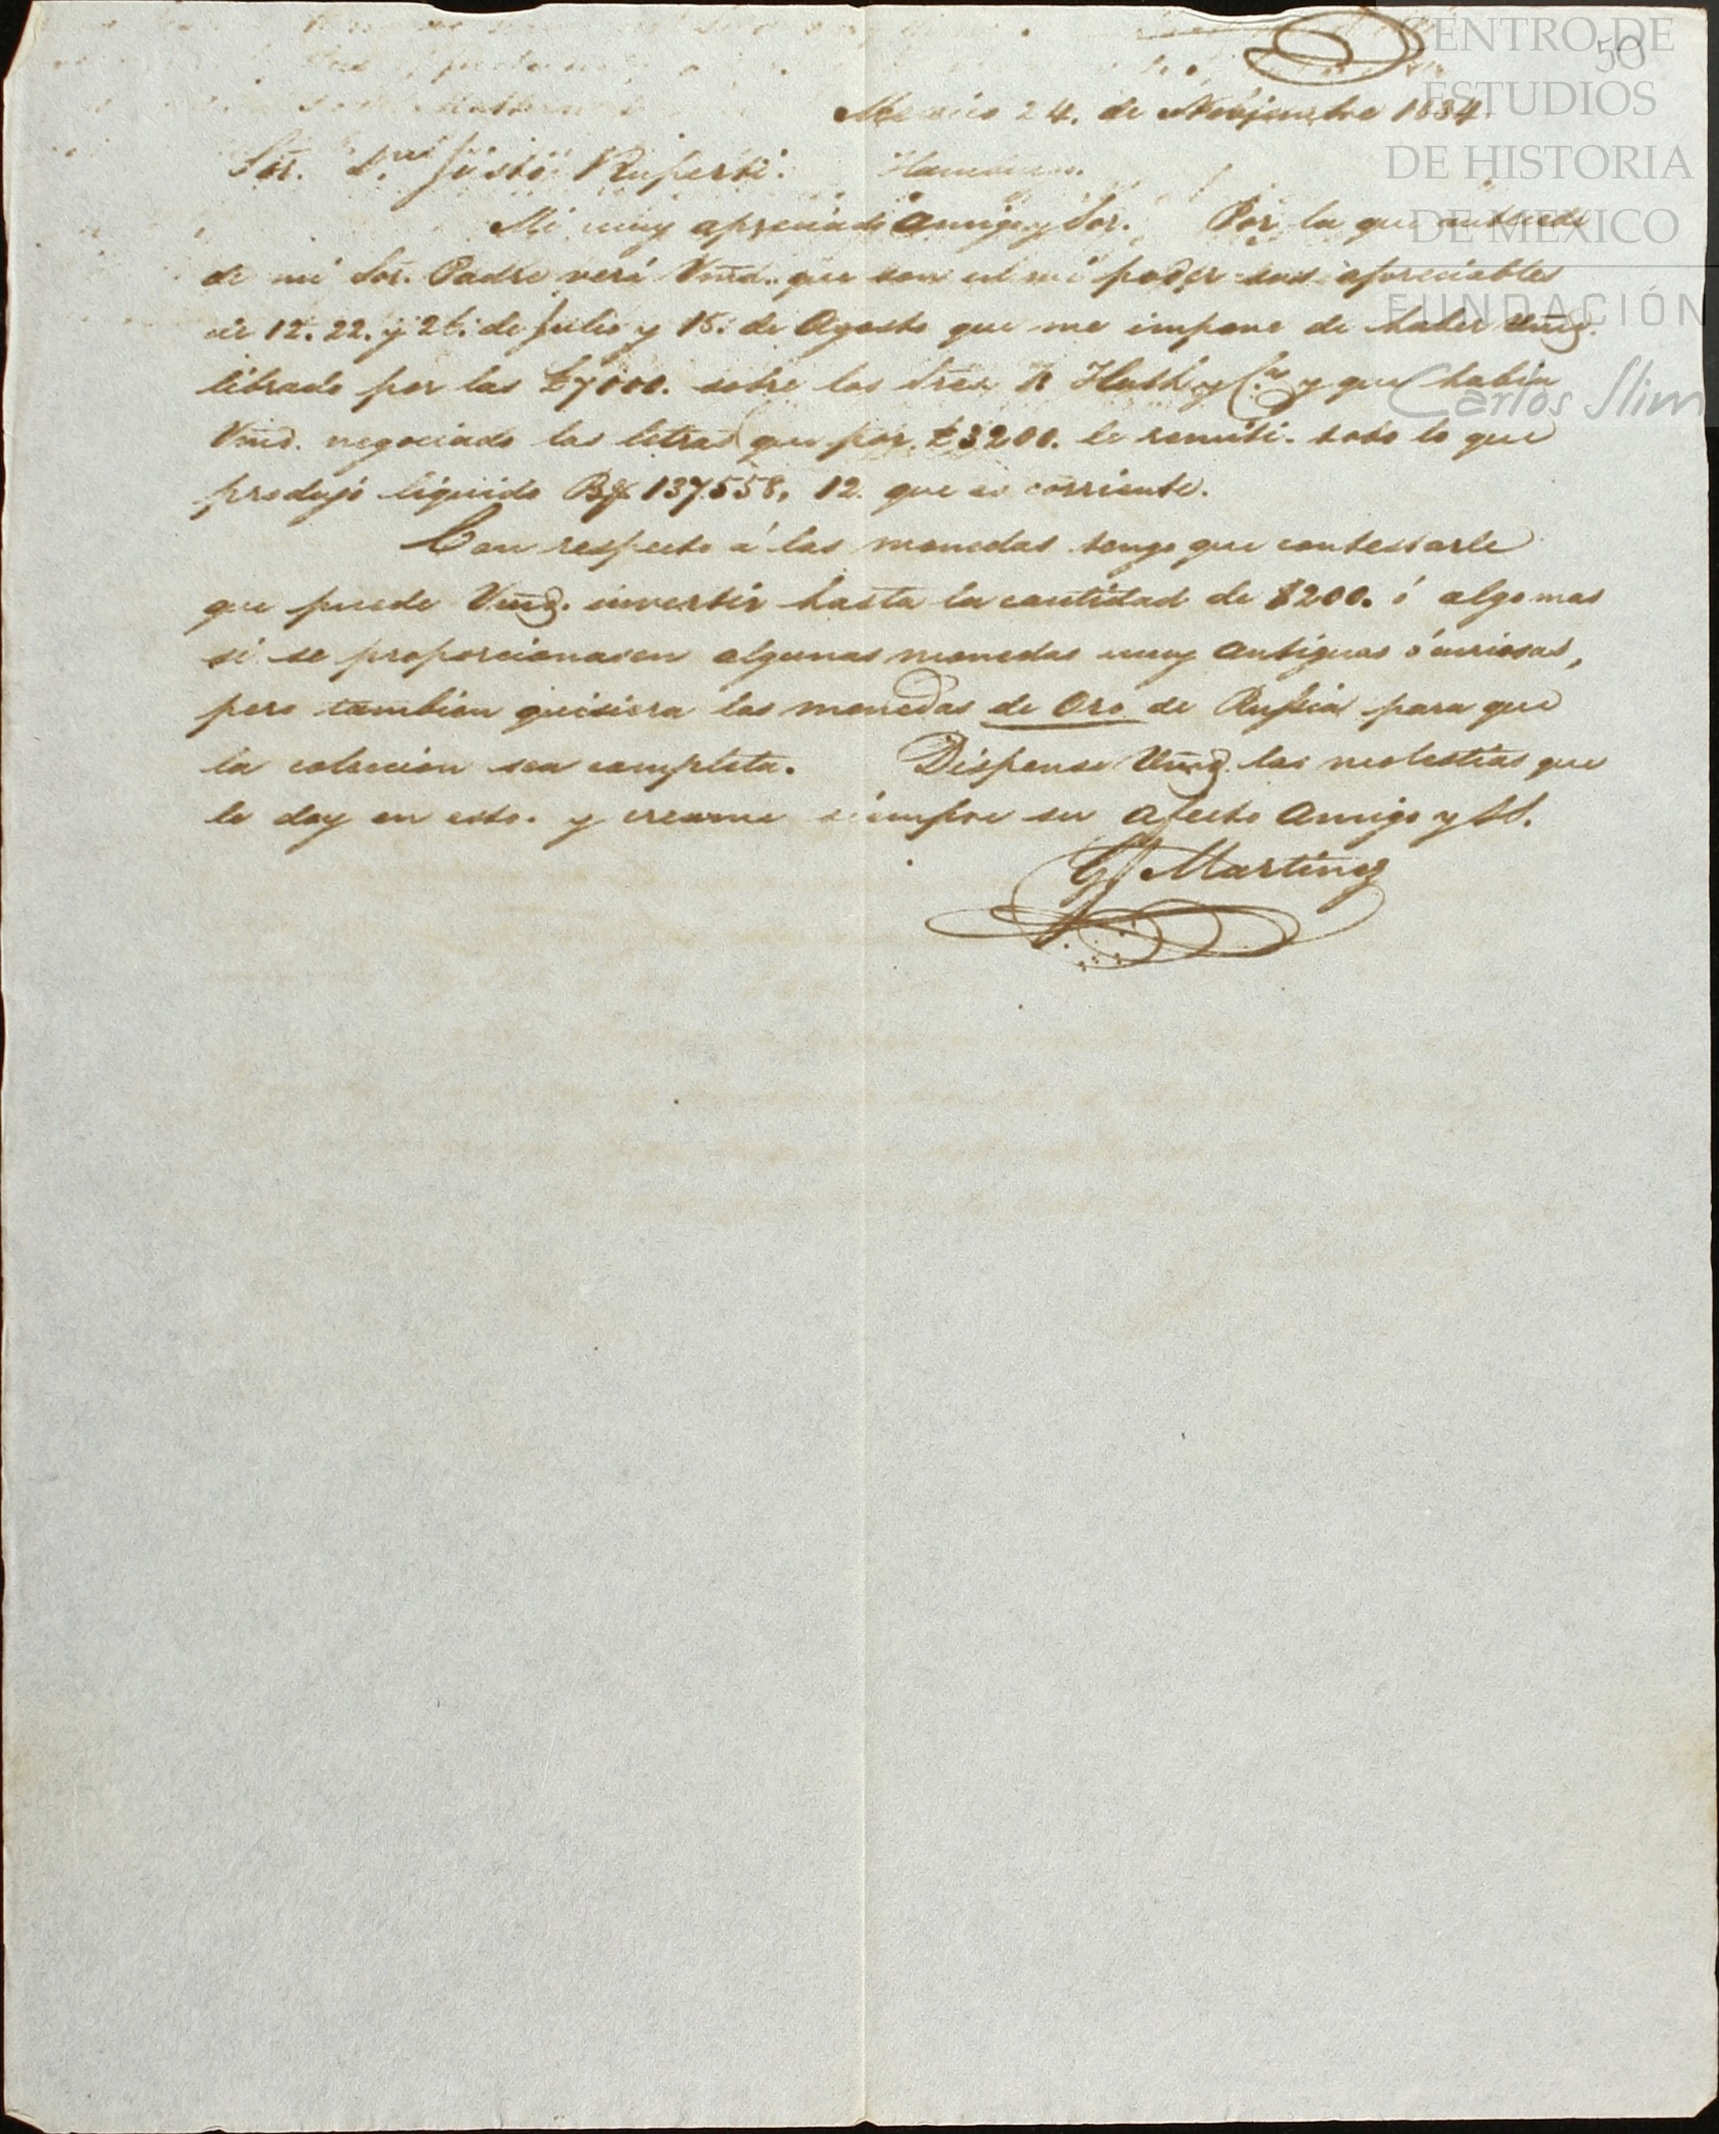 CENTRO DE
ESTUDIOS
DE HISTORIA
DE MEXICO
FUNDACIÓN
Carlos Slim
50
Mexico 24. de Noviembre 1834.
Sor. Dn. Justo Ruperti. Hamburgo.
Mi muy apreciado Amigo y Sor. Por la que antecede
de mi Sor. Padre verá Vmd. que son en mi poder sus apreciables
de 12. 22. y 26. de Julio y 15. de Agosto que me impone de haber Vmd.
librado por las £7000. sobre los Sres. Huth y Ca. y que habia
Vmd. negociado las letras que por £3200. le remiti. todo lo que
produjo liquido 137.558, 12. que es corriente.
Con respecto á las monedas tengo que contestarle
que puede Vmd. invertir hasta la cantidad de $200. ó algo mas
si se proporcionasen algunas monedas muy antiguas ó curiosas,
pero tambien quisiera las monedas de Oro de Rusia para que
la coleccion sea completa. Dispense Vmd. las molestias que
le doy en esto. y creame siempre su afecto Amigo y SS.
G Martinez